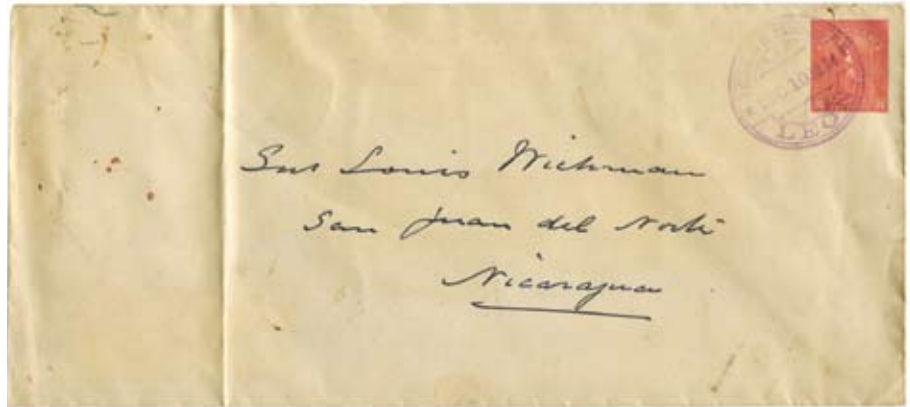 LEON
Snr Louis Wichman
San Juan del Norte
Nicaragua